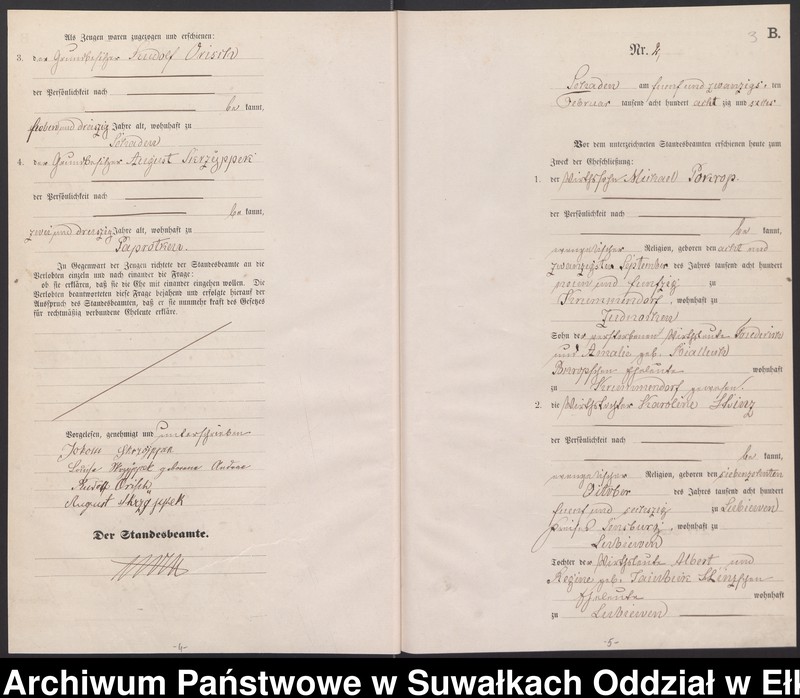 Als Zeugen waren zugezogen und erschienen:
3. der Grundbesitzer Rudolf Orisch
der Persönlichkeit nach
be kannt,
sieben und dreizig Jahre alt, wohnhaft zu
Schaden
4. der Grundbesitzer August Skrzyppek
der Persönlichkeit nach
be kannt,
zwei und dreizig Jahre alt, wohnhaft zu
Paprotken.
In Gegenwart der Zeugen richtete der Standesbeamte an die
Verlobten einzeln und nach einander die Frage:
ob sie erklären, daß sie die Ehe mit einander eingehen wollen. Die
Verlobten beantworteten diese Frage bejahend und erfolgte hierauf der
Ausspruch des Standesbeamten, daß er sie nunmehr kraft des Gesetzes
für rechtmäßig verbundene Eheleute erkläre.
Vorgelesen, genehmigt und unterschrieben
Skrzyppek
Louise Skrzyppek geborene
Rudolf Orisch
August Skrzÿppek
Der Standesbeamte.
-4-
3 B.
Nr. 2
Schaden am fünf und zwanzigs ten
Februar tausend acht hundert acht zig und sechs
Vor dem unterzeichneten Standesbeamten erschienen heute zum
Zweck der Eheschließung:
1. der Wirthssohn Michael
der Persönlichkeit nach
be kannt,
evangelischer Religion, geboren den acht und
zwanzigsten September des Jahres tausend acht hundert
neun und fünfzig zu
Krummendorf, wohnhaft zu
Sohn der verstorbenen Wirthsleute Friedrich
und Amalie geb.
Eheleute wohnhaft
zu Krummendorf gewesen.
2. die Wirthstochter Karoline
der Persönlichkeit nach
be kannt,
evangelischer Religion, geboren den siebenzehnten
October des Jahres tausend acht hundert
fünf und sechszig zu Lubiewen
Kreises Sensburg, wohnhaft zu
Lubiewen
Tochter der Wirthsleute Albert und
Regine geb.
Eheleute wohnhaft
zu Lubiewen
-5-
Archiwum Państwowe w Suwałkach Oddział w Eł